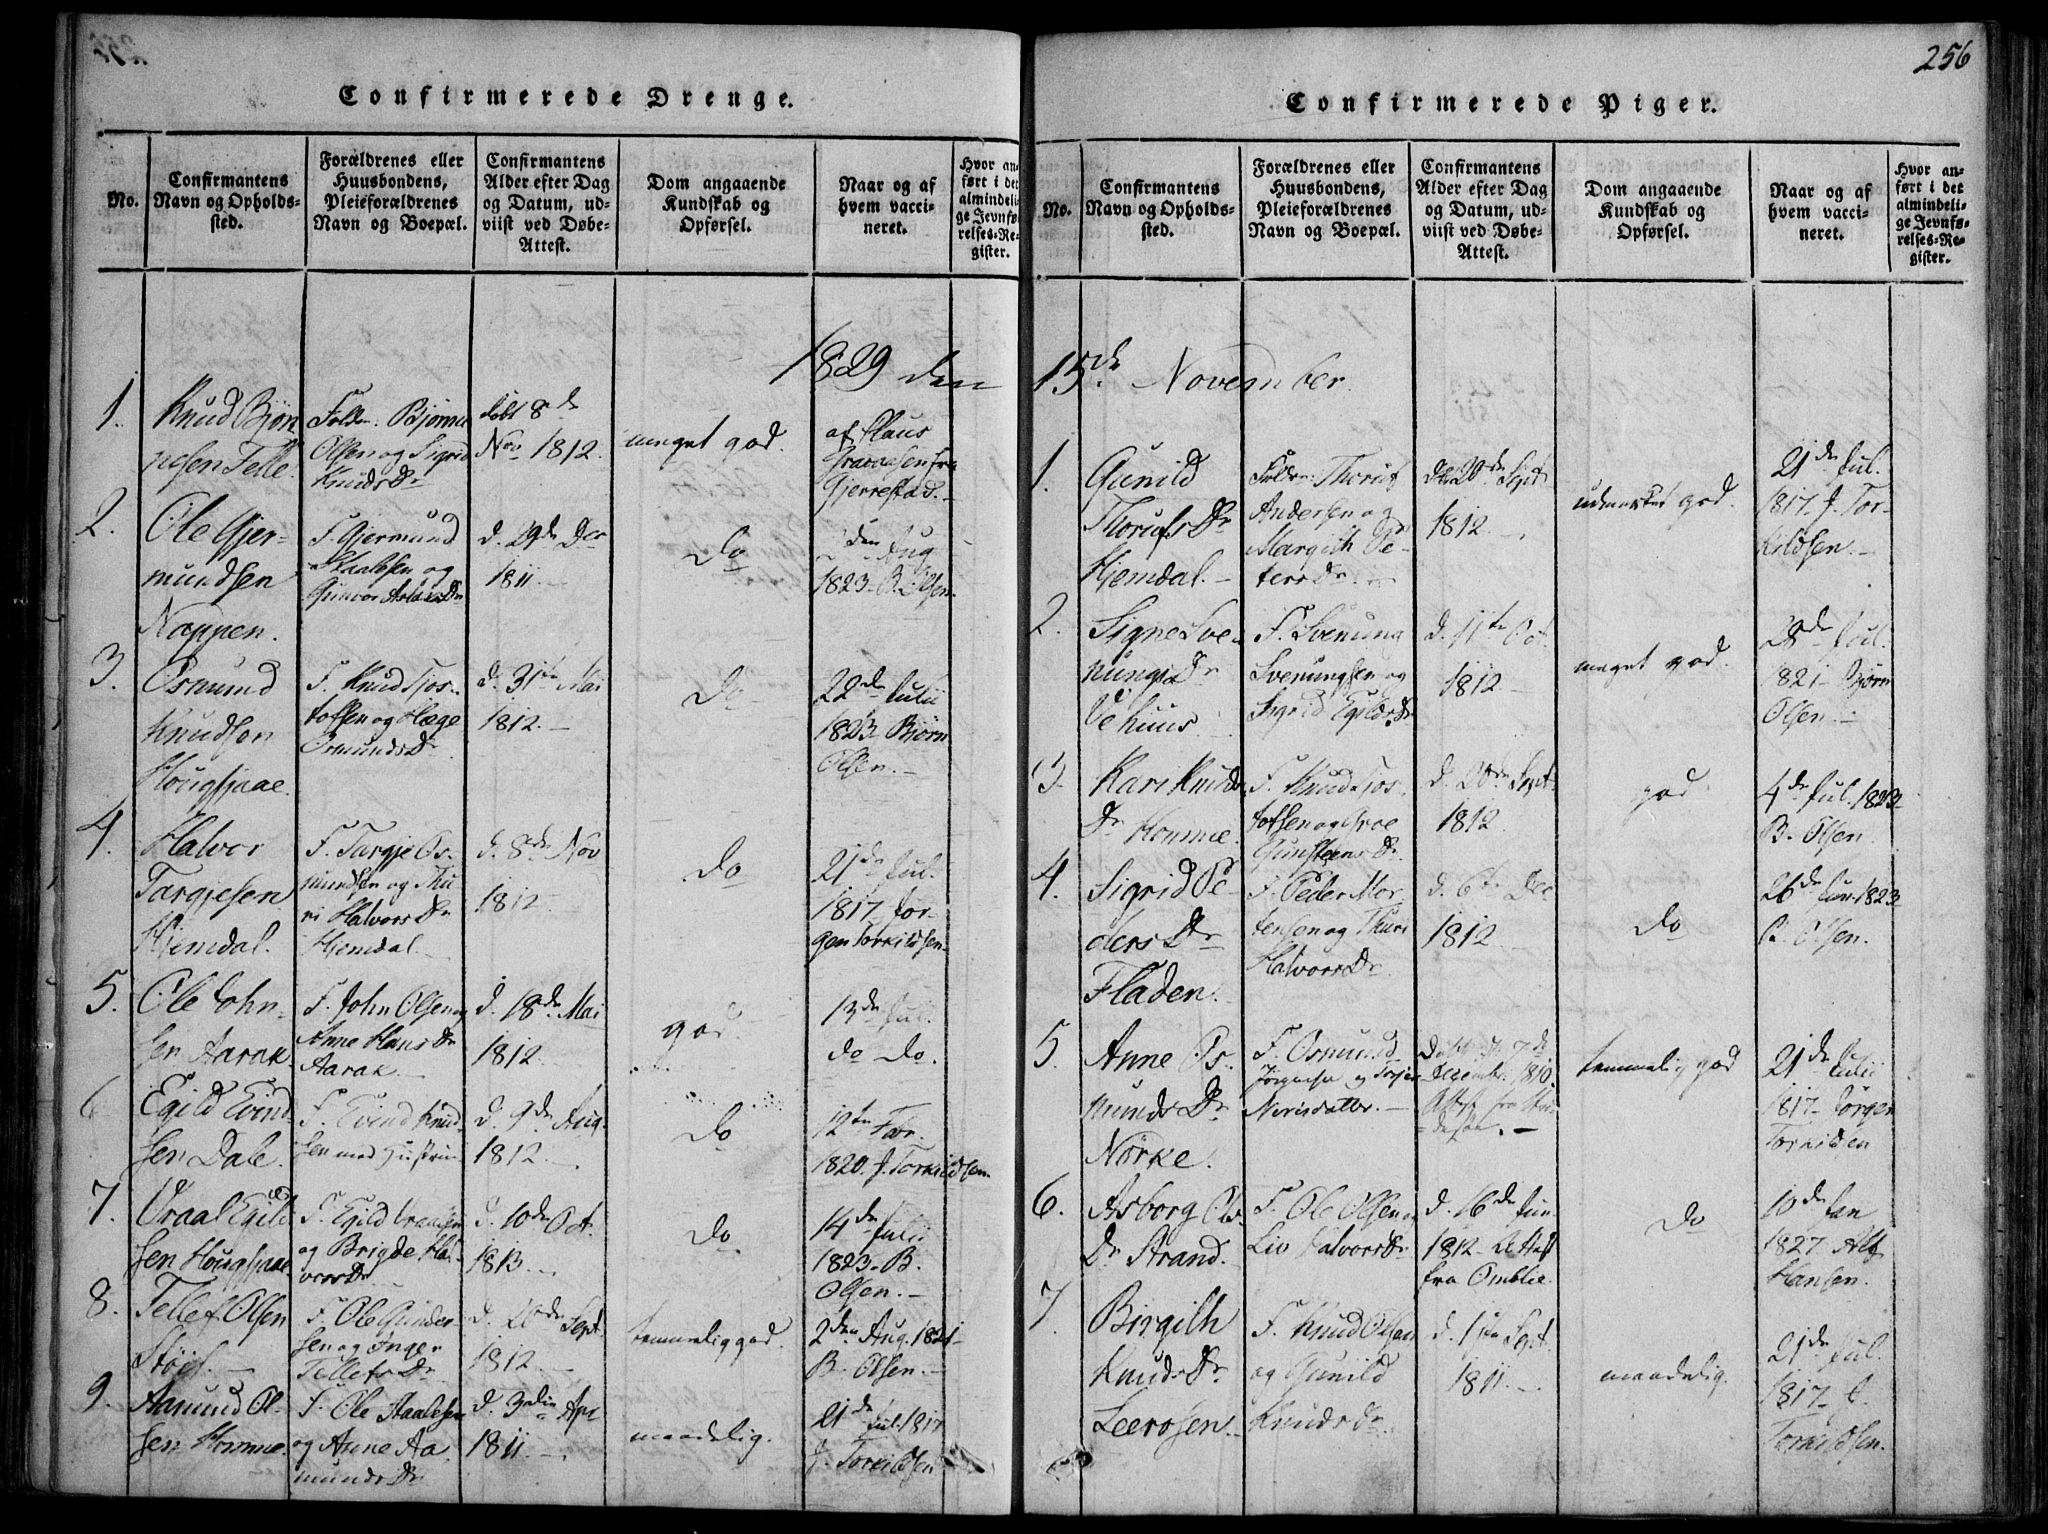 Confirmerede Drenge.
No.
Confirmantens
Navn og Opholds-
sted.
Forældrenes eller
Huusbondens,
Pleieforældrenes
Navn og Boepæl.
Confirmantens
Alder efter Dag
og Datum, ud-
viist ved Døbe-
Attest.
Dom angaaende
Kundskab og
Opførsel.
Naar og af
hvem vacci-
neret.
Hvor an-
ført i det
almindeli-
ge Jevnfø-
relses-Re-
gister.
1829 den
1.
Knud Bjön
nsen Felle.
Foldr. Bjönne
Olsen og Sigrid
Knuds Dr
födt 8de
Nov 1812.
meget god.
af Claus
fra
Gjerrestad.
2.
Ole Gjer-
mundsen
Noppen.
F. Gjermund
Staalesen og
Gunvor Dr
d. 29de Dec
1811.
Do
2den Aug
1823 B. Olsen.
3.
Osmund
Knudsen
Hougsjaae.
F. Knud Tjos-
tofsen og Hæge
Osmunds Dr
d. 31te Mai
1812.
Do
22de Julii
1823 Björn
Olsen.
4.
Halvor
Targjesen
Hjemdal.
F. Targje Os-
mundsen og Thu-
ri Halvors Dr
Hjemdal
d. 8de Nov
1812.
Do
21de Jul.
1817 Jör-
gen Torkildsen
5.
Ole John-
sen Aarak.
F. John Olsen og
Anne Hans Dr
Aarak.
d. 18de Mai
1812.
god
13de Jul.
do do.
6
Egild Evind-
sen Dale.
F. Evind Knud-
sen med Hustrue
d. 9de Aug.
1812.
Do
12te
1820. J. Torkildsen
7.
Vraal Egild
sen Hougsjaae
F. Egild Vraalsen
og Brigde Hal-
vors Dr
d. 10de Oct.
1813.
Do
14de Julii
1823 B.
Olsen.
8.
Tellef Olsen
Stöes.
F. Ole Gunder-
sen og Inger
Tellefs Dr
d. 20de Sept.
1812.
temmelig god.
2den Aug. 1821
B. Olsen.
9.
Aamund Ol-
sen Homme.
F. Ole Staalesen
og Anne Aa
munds Dr
d. 3die Apr
1811.
maadelig.
21de Jul. 1817
J. Torkildsen
256
Confirmerede Piger.
No.
Confirmantens
Navn og Opholds-
sted.
Forældrenes eller
Huusbondens,
Pleieforældrenes
Navn og Boepæl.
Confirmantens
Alder efter Dag
og Datum, ud-
viist ved Døbe-
Attest.
Dom angaaende
Kundskab og
Opførsel.
Naar og af
hvem vacci-
neret.
Hvor an-
ført i det
almindeli-
ge Jevnfø-
relses-Re-
gister.
15de November.
1.
Gunild
Thorufs Dr
Hjemdal.
Foldr. Thoruf
Andersen og
Margith Pe-
ters Dr
d. 20de Sept
1812.
udmærket god.
21de Jul.
1817. J. Tor-
kildsen.
2.
Signe Sve-
nungs Dr
Vehuus.
F. Svenung
Svenungsen og
Sigrid Egilds Dr
d. 11te Oct.
1812.
meget god.
28de Jul.
1821 Björn
Olsen.
3.
Kari Knuds
Dr Homme.
F. Knud Tjos-
tofsen og Groe
Gunsteens Dr
d. 20de Sept.
1812.
god
4de Jul. 1823
B. Olsen
4.
Sigrid Pe-
ders Dr
Fladen.
F. Peder Mor
tensen og Thuri
Halvors Dr
d. 6te Dec
1812.
Do
26de Jun. 1823
B. Olsen.
5
Anne Os-
munds Dr
Nörke.
F. Osmund
Jörgensen og
Döbt d. 7de
Decembr. 1810.
Attest fra
temmelig god
21de Julii
1817 Jörgen
Torkildsen
6.
Asborg Ols
Dr Strand.
F. Ole Olsen og
Liv Halvors Dr
d. 16de Jun.
1812 Attest
fra Omblie.
Do
10de Jan
1827 Alf
Hansen.
7.
Birgith
Knuds Dr
Leerosen.
F. Knud Olsen
og Gunild
Knuds Dr
d. 1ste Sept.
1811.
maadelig.
21de Jul.
1817 J.
Torkildsen.